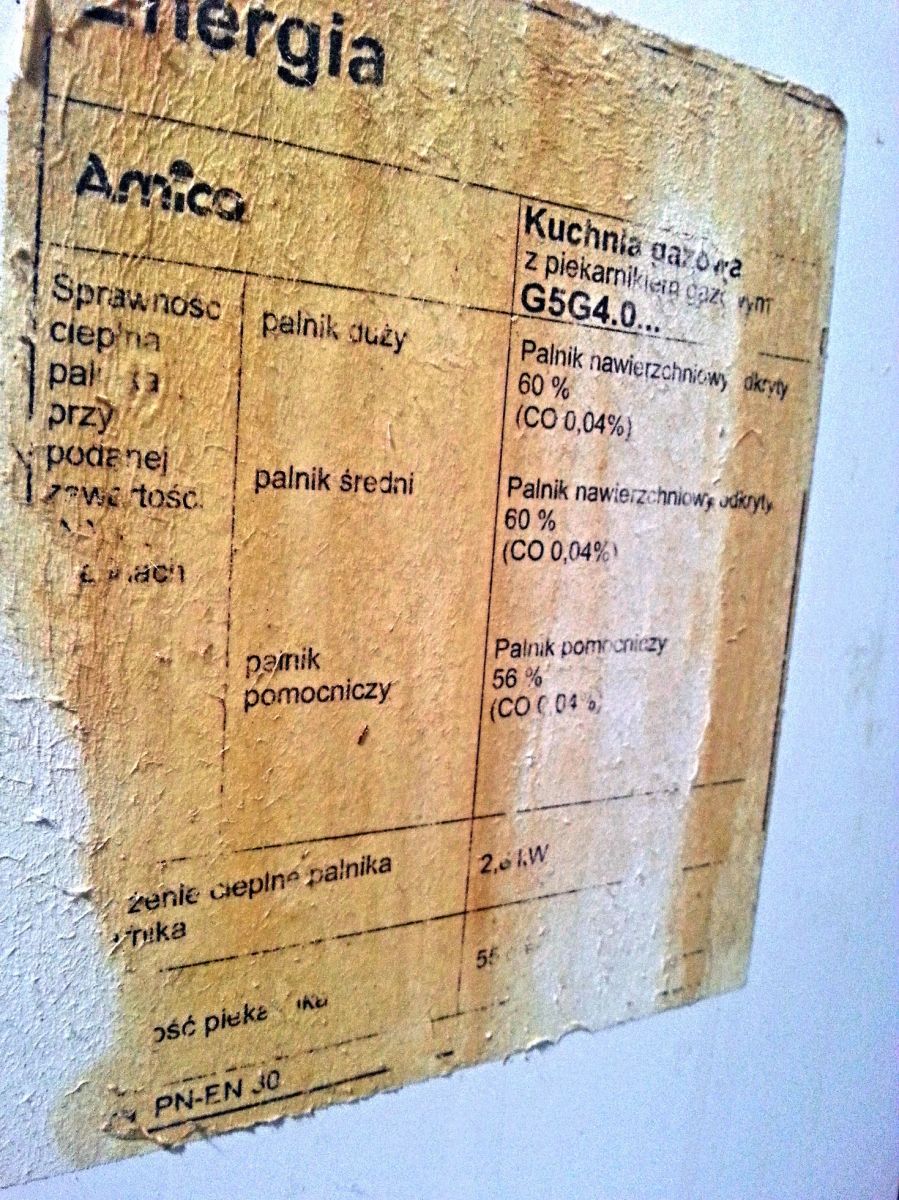 Energia
Amica
Kuchnia gazowa
z piekarnikiem gazowym
G5G4.0...
Sprawność
cieplna
palnika
przy
podanej
zawartości
palnik duży
Palnik nawierzchniowy odkryty
60 %
(CO 0,04%)
palnik średni
Palnik nawierzchniowy odkryty
60 %
(CO 0,04%)
palnik
pomocniczy
Palnik pomocniczy
56 %
(CO 0,04 %)
żenie cieplne palnika
rnika
kW
ość piekarnika
55
PN-EN 30